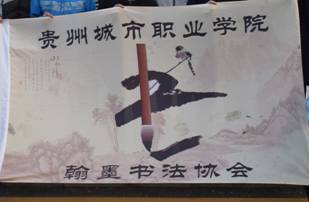 贵州城市职业学院
翰墨书法协会